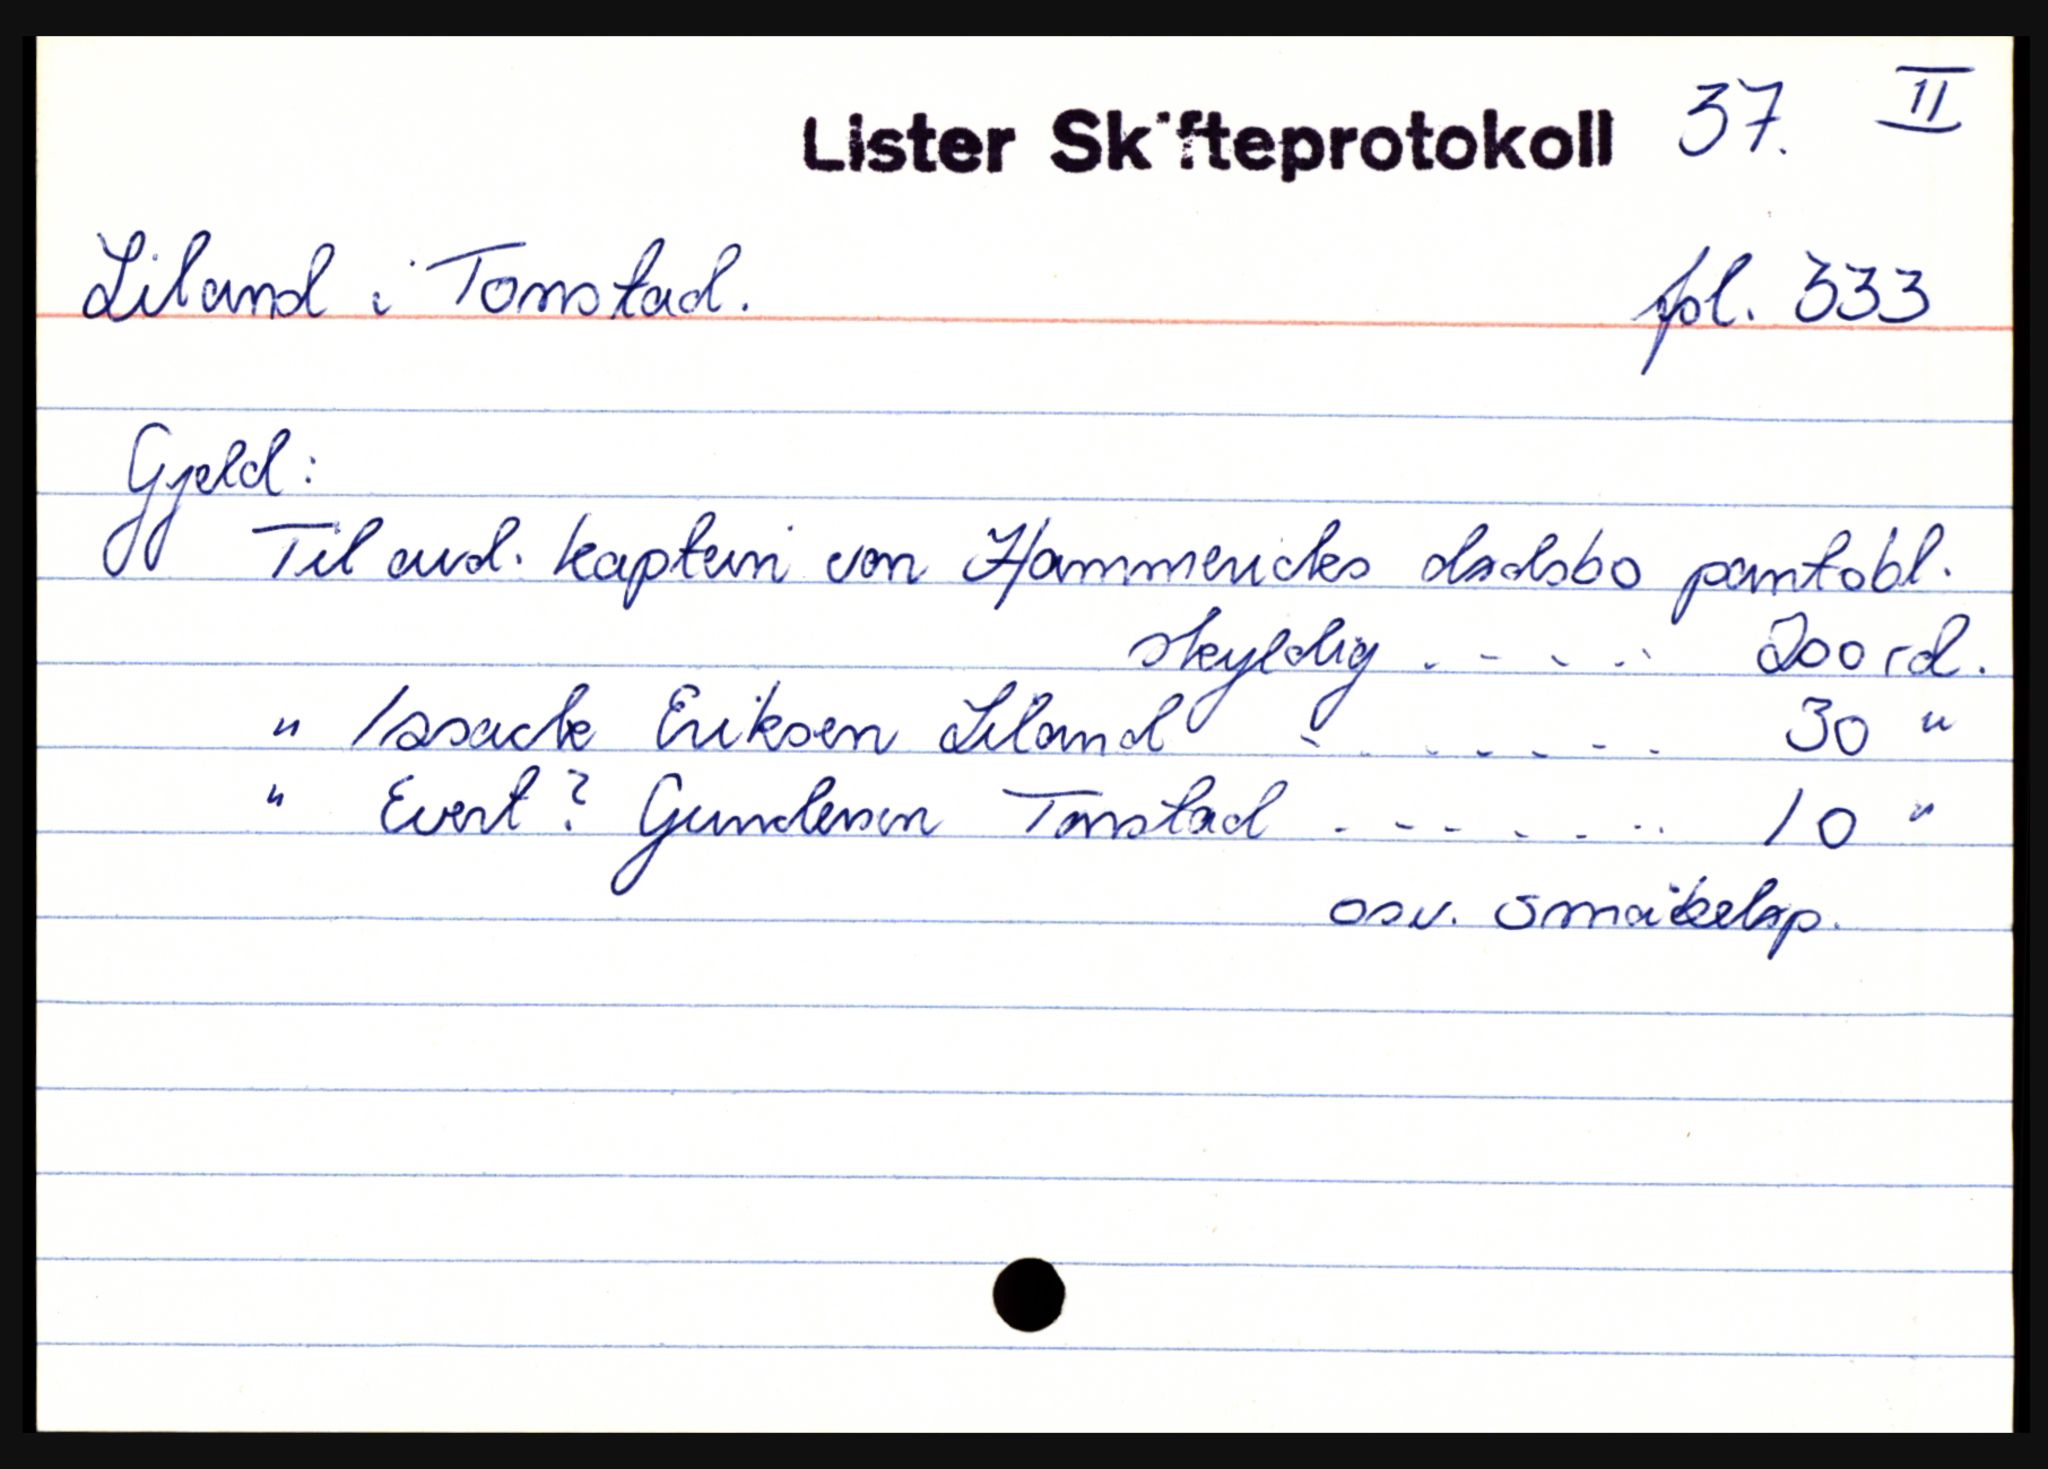 Lister Skifteprotokoll 37. II
Liland i Tonstad. fol. 333
Gjeld:
Til avd. kaptein von Hammericks dødsbo pantobl.
skyldig . - . . . 200 rd.
" Issack Eriksen Liland - . . . - - . 30 "
" Evert? Gundersen Tonstad - - - . . - . 10 "
osv. småbeløp.